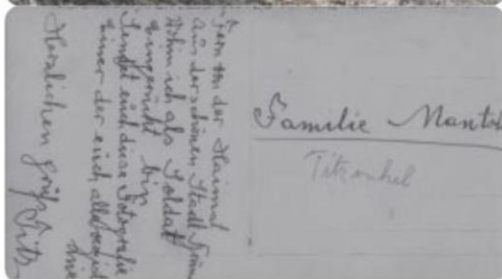 Fern von der Haimat
aus der schönen Stadt
Wohin ich als Soldat
eingerückt bin
Sendet euch diese Fotografie
einer der euch alle
nie
Herzlichen Gruß
Familie